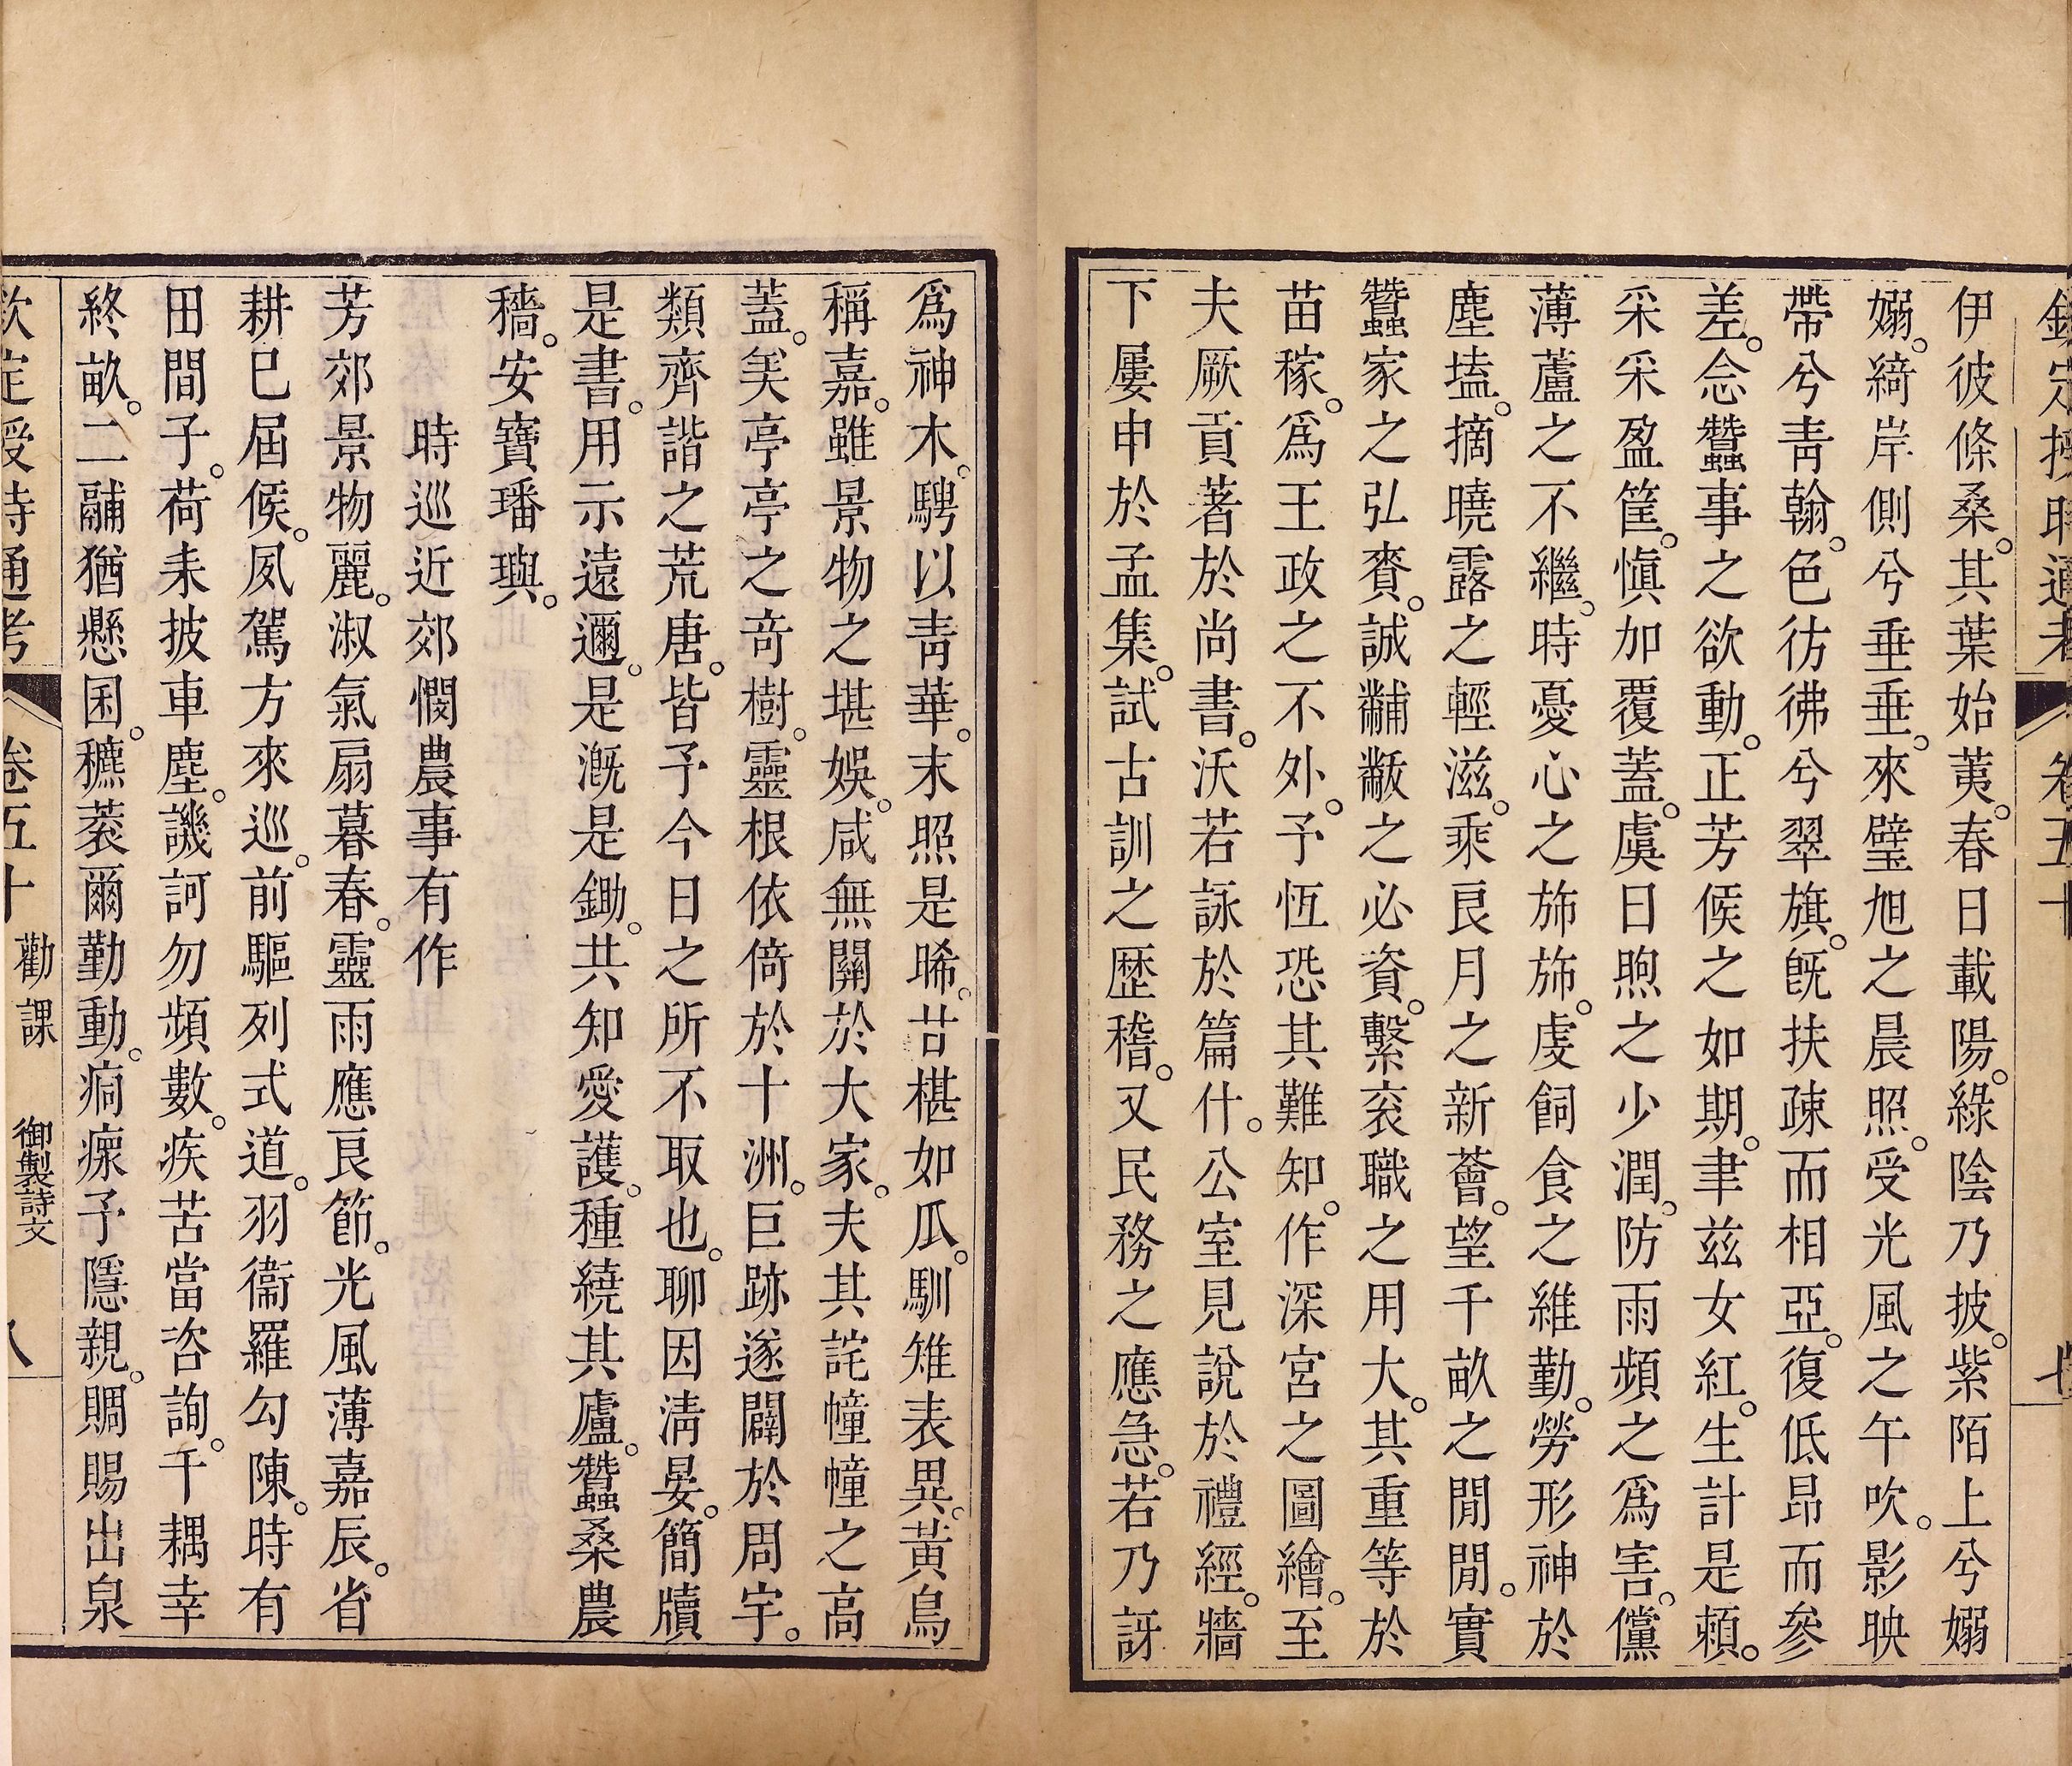 伊彼條桑。其葉始荑。春日載陽。綠陰乃披。紫陌上兮嫋
嫋。綺岸側兮垂垂。來璧旭之晨照。受光風之午吹。影映
帶兮靑翰。色彷彿兮翠旗。旣扶疎而相亞。復低昂而參
差。念蠶事之欲動。正芳候之如期。聿兹女紅。生計是賴。
采采盈筐。愼加覆蓋。虞日煦之少潤。防雨頻之爲害。儻
薄蘆之不繼。時憂心之斾斾。虔飼食之維勤。勞形神於
塵壒。摘曉露之輕滋。乘良月之新薈。望千畝之閒閒。實
蠶家之弘賚。誠黼黻之必資。繫衮職之用大。其重等於
苗稼。爲王政之不外。予恆恐其難知。作深宮之圖繪。至
夫厥貢著於尚書。沃若詠於篇什。公室見說於禮經。牆
下屢申於孟集。試古訓之歴稽。又民務之應急。若乃訝
爲神木。騁以靑華。末照是晞。甘椹如瓜。馴雉表異。黃鳥
稱嘉。雖景物之堪娛。咸無關於大家。夫其詫幢幢之高
蓋。羙亭亭之竒樹。靈根依倚於十洲。巨跡遂闢於周宇。
類齊諧之荒唐。皆予今日之所不取也。聊因淸晏。簡牘
是書。用示遠邇。是漑是鋤。共知愛護。種繞其廬。蠶桑農
穡。安寶璠璵。
時巡近郊憫農事有作
芳郊景物麗。淑氣扇暮春。靈雨應良節。光風薄嘉辰。省
耕巳屆候。夙駕方來巡。前驅列式道。羽衞羅勾陳。時有
田間子。荷耒披車塵。譏訶勿頻數。疾苦當咨詢。千耦幸
終畝。二鬴猶懸囷。穮蓘爾勤動。痌瘝予隱親。賙賜出泉
欽定授時通考 卷五十 勸課 御製詩文 八